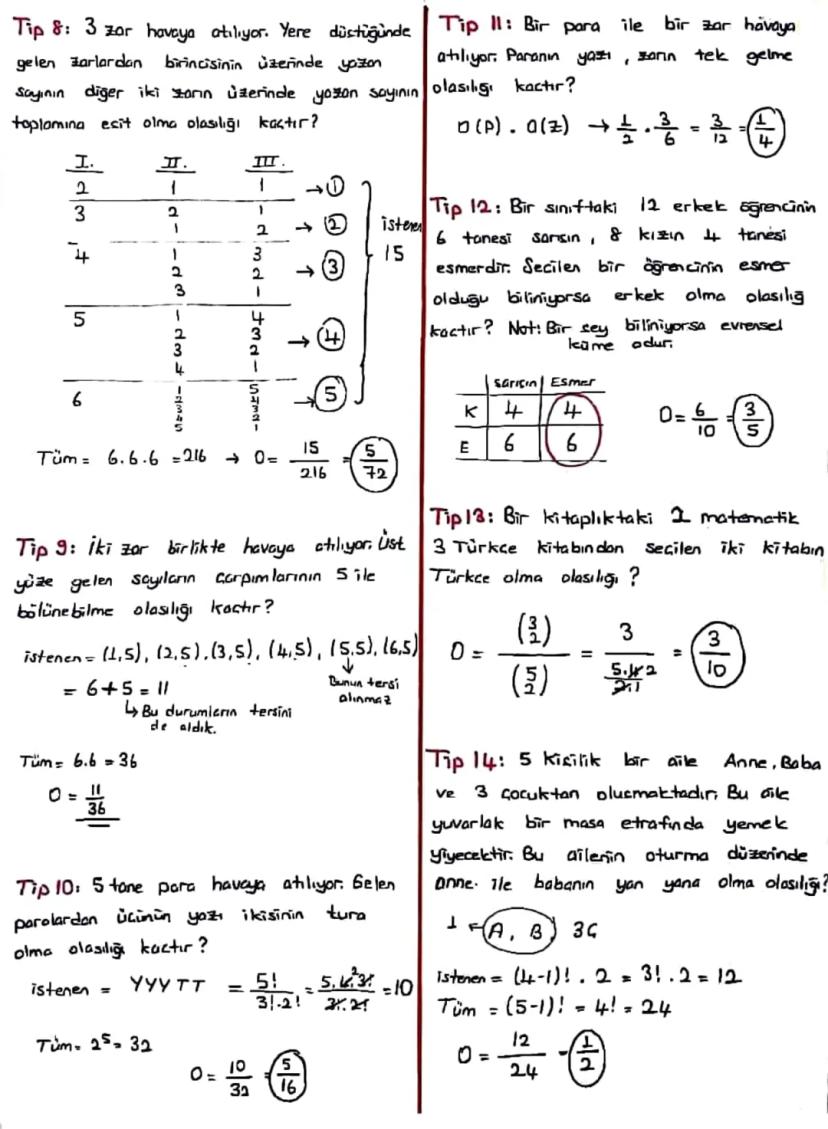 Tip 8: 3 zar havaya atılıyor. Yere düştüğünde
gelen zarlardan birincisinin üzerinde yazan
sayının diğer iki zarın üzerinde yazan sayının
toplamına eşit olma olasılığı kaçtır?
I. II. III.
2 1 1 → 1
3 2 1
1 2 → 2
4 1 3
2 2 → 3
3 1
5 1 4
2 3
3 2 → 4
4 1
6 1 5
2 4
3 3
4 2
5 1
→ 5
istenen
15
Tüm = 6.6.6 = 216 → O = 15/216 = 5/72
Tip 9: İki zar birlikte havaya atılıyor. Üst
yüze gelen sayıların çarpımlarının 5 ile
bölünebilme olasılığı kaçtır?
istenen = (1,5), (2,5), (3,5), (4,5), (5,5), (6,5)
↓
Bunun tersi
alınmaz
= 6+5 = 11
↳ Bu durumların tersini
de aldık.
Tüm = 6.6 = 36
O = 11/36
Tip 10: 5 tane para havaya atılıyor. Gelen
paralardan üçünün yazı ikisinin tura
olma olasılığı kaçtır?
istenen = YYYTT = 5!/3!.2! = 5.4.3!/3!.2! = 10
Tüm = 2⁵ = 32
O = 10/32 = 5/16
Tip 11: Bir para ile bir zar havaya
atılıyor. Paranın yazı, zarın tek gelme
olasılığı kaçtır?
O(P) . O(Z) → 1/2 . 3/6 = 3/12 = 1/4
Tip 12: Bir sınıftaki 12 erkek öğrencinin
6 tanesi sarışın, 8 kızın 4 tanesi
esmerdir. Seçilen bir öğrencinin esmer
olduğu biliniyorsa erkek olma olasılığ
kaçtır? Not: Bir şey biliniyorsa evrensel
küme odur.
Sarışın Esmer
K 4 4
E 6 6
O = 6/10 = 3/5
Tip 13: Bir kitaplıktaki 2 matematik
3 Türkçe kitabından seçilen iki kitabın
Türkçe olma olasılığı ?
O = (3 2)/(5 2) = 3/(5.4/2.1) = 3/10
Tip 14: 5 kişilik bir aile Anne, Baba
ve 3 çocuktan oluşmaktadır. Bu aile
yuvarlak bir masa etrafında yemek
yiyecektir. Bu ailenin oturma düzeninde
anne ile babanın yan yana olma olasılığı?
1 ← A, B 3Ç
istenen = (4-1)! . 2 = 3! . 2 = 12
Tüm = (5-1)! = 4! = 24
O = 12/24 = 1/2